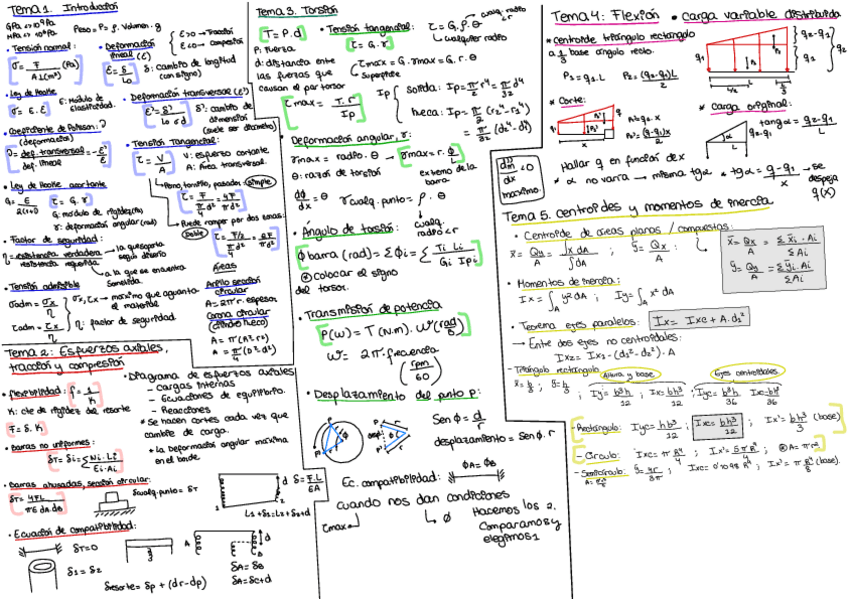 Tema 1. Introducción
Peso = P = ρ. Volumen. g
• Tensión normal:
• Deformación lineal (ε)
ε>0 -> Tracción
ε<0 -> compresión
δ: cambio de longitud (con signo)
• Ley de Hooke
σ = E. ε
E: módulo de elasticidad.
• Deformación transversal (ε')
δ': cambio de dimensión (suele ser diámetro)
• Coeficiente de Poisson: ν
(deformación)
• Tensión Tangencial:
V: esfuerzo cortante
A: Área transversal.
• Ley de Hooke cortante
τ = G. γ
G: módulo de rigidez (Pa)
γ: deformación angular (rad)
Perno, tornillo, pasador, simple
• Puede romper por dos zonas: doble
• Factor de seguridad:
η = resistencia verdadera / resistencia requerida
la que soporta según diseño
a la que se encuentra sometida.
• Tensión admisible
σadm = σx / η
τadm = τx / η
σx, τx -> máximo que aguanta el material
η: factor de seguridad.
Áreas
Anillo sección circular
A = 2πr. espesor
Corona circular (cilindro hueco)
Tema 2: Esfuerzos axiales, tracción y compresión
• flexibilidad: f = 1/K
K: cte de rigidez del resorte
F = δ. K
• barras no uniformes:
• barras ahusadas, sección circular:
δcualq.punto = δT
• Ecuación de compatibilidad:
δT = 0
δ1 = δ2
• Diagrama de esfuerzos axiales
- Cargas internas
- Ecuaciones de equilibrio.
- Reacciones
• Se hacen cortes cada vez que cambie de carga.
* La deformación angular máxima en el borde.
δ = F.L / EA
L1 + δ1 = L2 + δ2 + d
δA = δB
δA = δc + d
δresorte = δp + (dr-dp)
Tema 3. Torsión
T = P. d
P: fuerza
d: distancia entre las fuerzas que causan el par torsor
• Tensión tangencial:
τ = G. γ
τ = G. ρ. θ
cualq. radio < r
cualquier radio
τmax = G. γmax = G. r. θ
superficie
τmax = T. r / Ip
Ip
solida: Ip = π/2 r⁴ = π d⁴/32
hueca: Ip = π/2 (r2⁴ - r1⁴)
= π/32 (d2⁴ - d1⁴)
Deformación angular, γ:
γmax = radio. θ -> γmax = r. φ/L
θ: razón de torsión
extremo de la barra
dφ/dx = θ
γcualq.punto = ρ. θ
cualq. radio < r
• Ángulo de torsión:
φ barra (rad) = Σφi = Σ Ti Li / Gi Ipi
* Colocar el signo del torsor.
• Transmisión de potencia
P(W) = T (N.m). ω (rad/s)
ω = 2π. frecuencia
(rpm/60)
• Desplazamiento del punto P:
Sen φ = d/r
desplazamiento = Sen φ. r
Ec. compatibilidad:
φA = φB
cuando nos dan condiciones
τmax
φ
Hacemos los 2. Comparamos y elegimos 1
Tema 4: Flexión
• carga variable distribuida
* centroide triángulo rectángulo
a 1/3 base ángulo recto.
P1 = q1. L
P2 = (q2-q1) L / 2
* Corte:
P1 = q1. x
P2 = (q-q1) x / 2
* Carga original:
tang α = q2-q1 / L
dm/dx = 0
máximo
Hallar q en función de x
* α no varía -> misma tg α
* tg α = q-q1 / x -> se despeja q(x)
Tema 5. centroides y momentos de inercia
• Centroide de áreas planas / compuestas:
• Momentos de inercia:
Ix = ∫A y² dA ; Iy = ∫A x² dA
• Teorema ejes paralelos: Ix = Ixc + A. d1²
-> Entre dos ejes no centroidales:
Ix2 = Ix1 - (d1² - d2²). A
- Triángulo rectángulo
Altura y base
Ejes centroidales
x̄ = b/3 ; ȳ = h/3 ; Iy = b³h/12 ; Ix = bh³/12 ; Iyc = b³h/36 Ixc = bh³/36
- Rectángulo: Iyc = hb³/12 ; Ixc = bh³/12 ; Ix' = bh³/3 (base)
- Círculo: Ixc = π R⁴/4 ; Ix' = 5πR⁴/4 ; * A = πr²
- Semicírculo: ȳ = 4r/3π ; Ixc = 0'1098 R⁴ ; Ix' = π R⁴/8 (base).